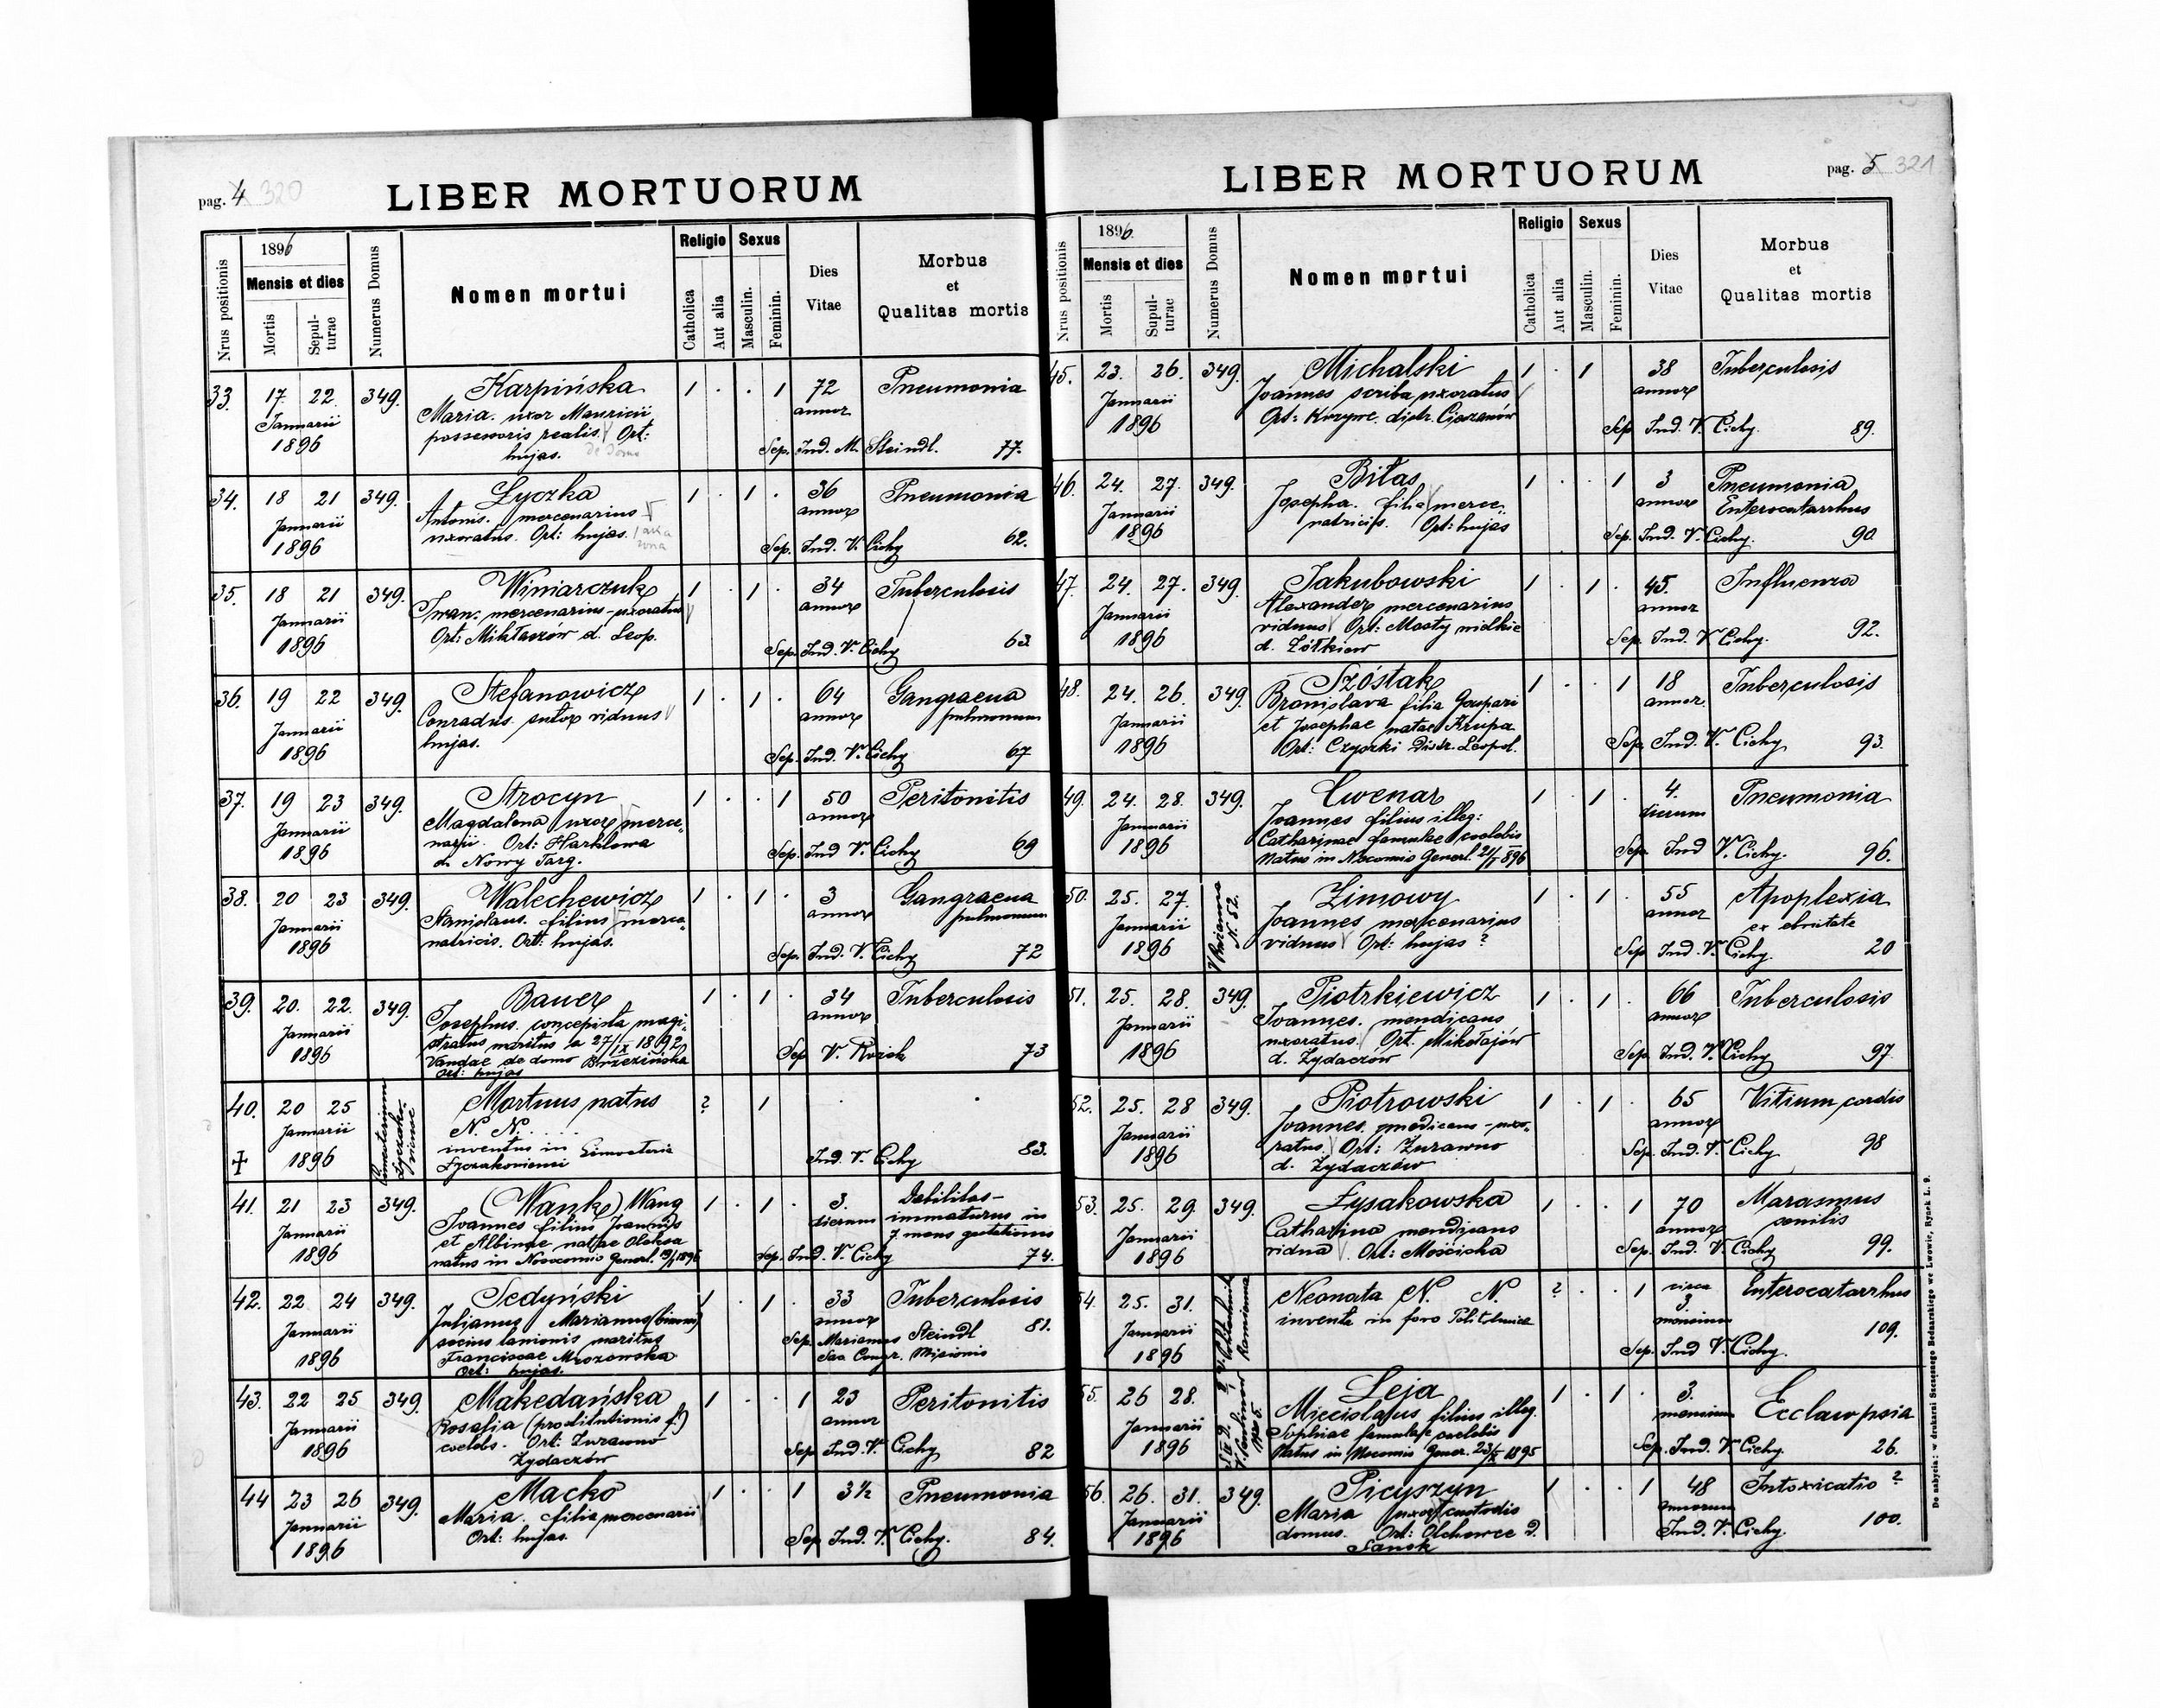 pag. 4 320
LIBER MORTUORUM
Nrus positionis
1896
Mensis et dies
Mortis
Sepul-
turae
Numerus Domus
Nomen mortui
Religio
Catholica
Aut alia
Sexus
Masculin.
Feminin.
Dies
Vitae
Morbus
et
Qualitas mortis
33. 17. 22. 349. Karpińska 1 . . 1 72 Pneumonia
Januarii Maria. uxor Mauricii annor
1896 possessoris realis. Ort:
hujas. de domo Sep. Ind. M. Steindl. 77.
34. 18 21 349. Łyczka 1 . 1 . 36 Pneumonia
Januarii Antonis. mercenarius annor
1896 uxoratus. Ort: hujas. Sep. Ind. V. Cichy 62.
35. 18 21 349. Winiarczuk 1 . 1 . 34 Tuberculosis
Januarii Iwan. mercenarius - uxoratus annor
1896 Ort: Mikłaszów d. Leop. Sep. Ind. V. Cichy 63.
36. 19 22 349. Stefanowicz 1 . 1 . 64 Gangraena
Januarii Conradus. sutor viduus annor pulmonum
1896 hujas. Sep. Ind. V. Cichy 67
37. 19 23 349. Strocyn 1 . . 1 50 Peritonitis
Januarii Magdalena uxor merce- annor
1896 narii. Ort: Harklowa
d. Nowy Targ. Sep. Ind V. Cichy 69
38. 20 23 349. Walechewicz 1 . 1 . 3 Gangraena
Januarii Stanislaus. filius merce- annor pulmonum
1896 natricis. Ort: hujas. Sep. Ind. V. Cichy 72
39. 20. 22. 349. Bauer 1 . 1 . 34 Tuberculosis
Januarii Josephus. concepista magi- annor
1896 stratus maritus a 27/IX 1892
Vandae de domo Brzezińska Sep V. 73
Ort: hujas
40. 20 25 Cimeterium Łyczako- Mortuus natus ? 1 . .
Januarii N. N. . . .
1896 inventus in Cimeterio
Łyczakoviensi Ind. V. Cichy 83.
41. 21 23 349. (Wank) Wang 1 . 1 . 3. Debilitas -
Januarii Joannes filius Joannis dierum immaturus in
1896 et Albinae natae Oleksa 7 mens gestationis
natus in Nosocomio Generl. 19/I 1896 Sep. Ind. V. Cichy 74.
42. 22 24 349. Sedyński 1 . 1 . 33 Tuberculosis
Januarii Julianus Marianus (binom) annor 81.
1896 socius lanionis maritus Sep. Marianus Steindl
Franciscae Mrozowska Sac Congr. Misionis
Ort: hujas.
43. 22 25 349. Makedańska 1 . . 1 23 Peritonitis
Januarii Rosalia (prostitutionis f.) annor
1896 coelebs. Ort: Żurawno
Żydaczów Sep Ind. V. Cichy 82
44 23 26 349. Macko 1 . . 1 3½ Pneumonia
Januarii Maria. filia mercenarii
1896 Ort: hujas. Sep Ind. V. Cichy. 84.
pag. 5 321
LIBER MORTUORUM
Nrus positionis
1896.
Mensis et dies
Mortis
Supul-
turae
Numerus Domus
Nomen mortui
Religio
Catholica
Aut alia
Sexus
Masculin.
Feminin.
Dies
Vitae
Morbus
et
Qualitas mortis
45. 23. 26. 349. Michalski 1 . 1 38 Tuberculosis
Januarii Joannes scriba uxoratus annor
1896 Ort: Krzywe. distr. Cieszanów Sep Ind. V. Cichy. 89.
46. 24. 27. 349. Biłas 1 . . 1 3 Pneumonia
Januarii Josepha. filia merce- annor Enterocatarrhus
1896 natricis. Ort: hujas Sep. Ind. V. Cichy. 90.
47. 24. 27. 349. Jakubowski 1 . 1 . 45. Influenza
Januarii Alexander mercenarius annor
1896 viduus Ort: Mosty wielkie
d. Żółkiew Sep. Ind. V. Cichy. 92.
48. 24. 26. 349. Szóstak 1 . . 1 18 Tuberculosis
Januarii Bronislava filia Gaspari annor.
1896 et Josephae natae Krupa
Ort: Czyszki Distr. Leopol. Sep. Ind. V. Cichy 93.
49. 24. 28. 349. Cwenar 1 . 1 . 4. Pneumonia
Januarii Joannes filius illeg: dierum
1896 Catharinae famulae coelebis
Natus in Nocomio Generl. 21/I 896 Sep. Ind V. Cichy. 96.
50. 25. 27. N. 52. Zimowy 1 . 1 . 55 Apoplexia
Januarii Joannes mercenarius annor ex ebrietate
1896 viduus Ort: hujas ? Sep Ind. V. Cichy. 20
51. 25. 28. 349. Piotrkiewicz 1 . 1 . 66 Tuberculosis
Januarii Joannes. mendicans annor
1896 uxoratus. Ort. Mikołajów
d. Żydaczów Sep. Ind. V. Cichy 97.
52. 25. 28 349. Piotrowski 1 . 1 . 65 Vitium cordis
Januarii Joannes. mendicans - uxo- annor
1896 ratus. Ort: Żurawno
d. Żydaczów Sep. Ind. V. Cichy 98
53. 25. 29. 349. Łysakowska 1 . . 1 70 Marasmus
Januarii Catharina mendicans annor senilis
1896 vidua. Ort: Mościska Sep. Ind. V. Cichy 99.
54. 25. 31. Neonata N. N. ? . . 1 circa Enterocatarrhus
Januarii inventa in foro Politechnica 3. mensium
1896 Sep. Ind V. Cichy. 109.
55. 26 28. Leja 1 . 1 . 3. Ecclampsia
Januarii Miecislaus filius illeg. mensium
1896 Sophiae famulae coelebis
Natus in Nocomio Gener. 23/X 1895 Sep. Ind. V. Cichy. 26.
56. 26. 31. 349. Picyszyn 1 . . 1 48 Intoxicatio ?
Januarii Maria uxor custodis annorum
1896 domus. Ort: Olchowce d.
Sanok Ind. V. Cichy. 100.
Do nabycia: w drukarni Szczęsnego Bednarskiego we Lwowie, Rynek L. 9.